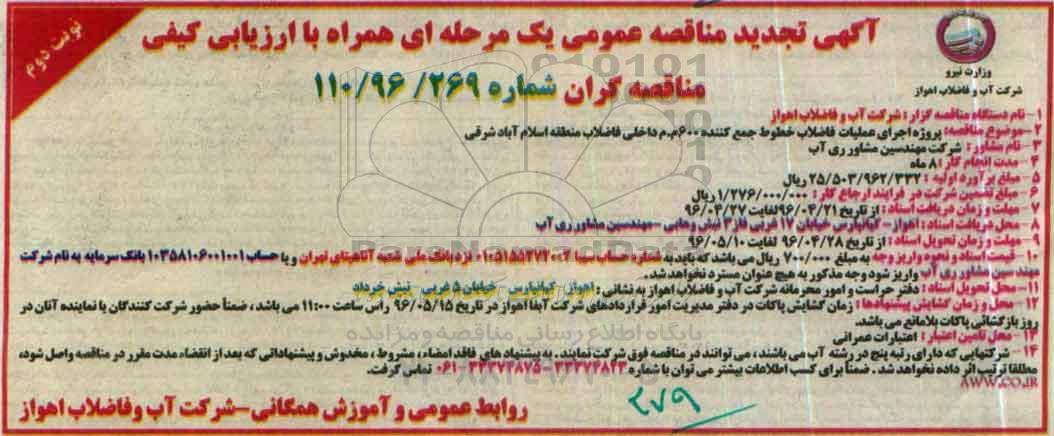 نوبت دوم
وزارت نیرو
شرکت آب و فاضلاب اهواز
آگهی تجدید مناقصه عمومی یک مرحله ای همراه با ارزیابی کیفی
مناقصه گران شماره ۲۶۹/ ۱۱۰/۹۶
۱- نام دستگاه مناقصه گزار : شرکت آب و فاضلاب اهواز
۲- موضوع مناقصه: پروژه اجرای عملیات فاضلاب خطوط جمع کننده ۶۰۰م.م داخلی فاضلاب منطقه اسلام آباد شرقی
۳- نام مشاور : شرکت مهندسین مشاور ری آب
۴- مدت انجام کار : ۸ ماه
۵- مبلغ برآورد اولیه : ۲۵/۵۰۳/۹۶۲/۳۳۲ ریال
۶- مبلغ تضمین شرکت در فرایند ارجاع کار : ۱/۲۷۶/۰۰۰/۰۰۰ ریال
۷- مهلت و زمان دریافت اسناد : از تاریخ ۹۶/۰۴/۲۱ لغایت ۹۶/۰۴/۲۷
۸- محل دریافت اسناد : اهواز- کیانپارس خیابان ۱۷ غربی فاز ۳ نبش وهابی -مهندسین مشاور ری آب
۹- مهلت و زمان تحویل اسناد : از تاریخ ۹۶/۰۴/۲۸ لغایت ۹۶/۰۵/۱۰
۱۰- قیمت اسناد و نحوه واریز وجه به مبلغ ۷۰۰/۰۰۰ ریال می باشد که باید به شماره حساب سیبا ۰۱۰۵۱۵۵۲۷۲۰۰۲ نزد بانک ملی شعبه آناهیتای تهران و یا حساب ۱۰۳۵۸۱۰۶۰۰۱۰۰۱ بانک سرمایه به نام شرکت
مهندسین مشاور ری آب واریز شود وجه مذکور به هیچ عنوان مسترد نخواهد شد.
۱۱- محل تحویل اسناد : دفتر حراست و امور محرمانه شرکت آب و فاضلاب اهواز به نشانی : اهواز- کیانپارس - خیابان ۵ غربی - نبش خرداد
۱۲- محل و زمان گشایش پیشنهادها : زمان گشایش پاکات در دفتر مدیریت امور قراردادهای شرکت آبفا اهواز در تاریخ ۹۶/۰۵/۱۵ راس ساعت ۱۱:۰۰ می باشد ، ضمناً حضور شرکت کنندگان یا نماینده آنان در
روز بازگشائی پاکات بلامانع می باشد.
۱۳- محل تامین اعتبار : اعتبارات عمرانی
۱۴- شرکتهایی که دارای رتبه پنج در رشته آب می باشند ، می توانند در مناقصه فوق شرکت نمایند . به پیشنهاد های فاقد امضاء ، مشروط ، مخدوش و پیشنهاداتی که بعد از انقضاء مدت مقرر در مناقصه واصل شود،
مطلقا ترتیب اثر داده نخواهد شد . ضمناً برای کسب اطلاعات بیشتر می توان با شماره ۳۳۳۷۴۸۴۳ - ۳۳۳۷۴۸۷۵-۰۶۱ تماس گرفت.
AWW.CO.IR
روابط عمومی و آموزش همگانی-شرکت آب وفاضلاب اهواز
۲۷۹
ParsNamadData
پایگاه اطلاع رسانی مناقصه و مزایده